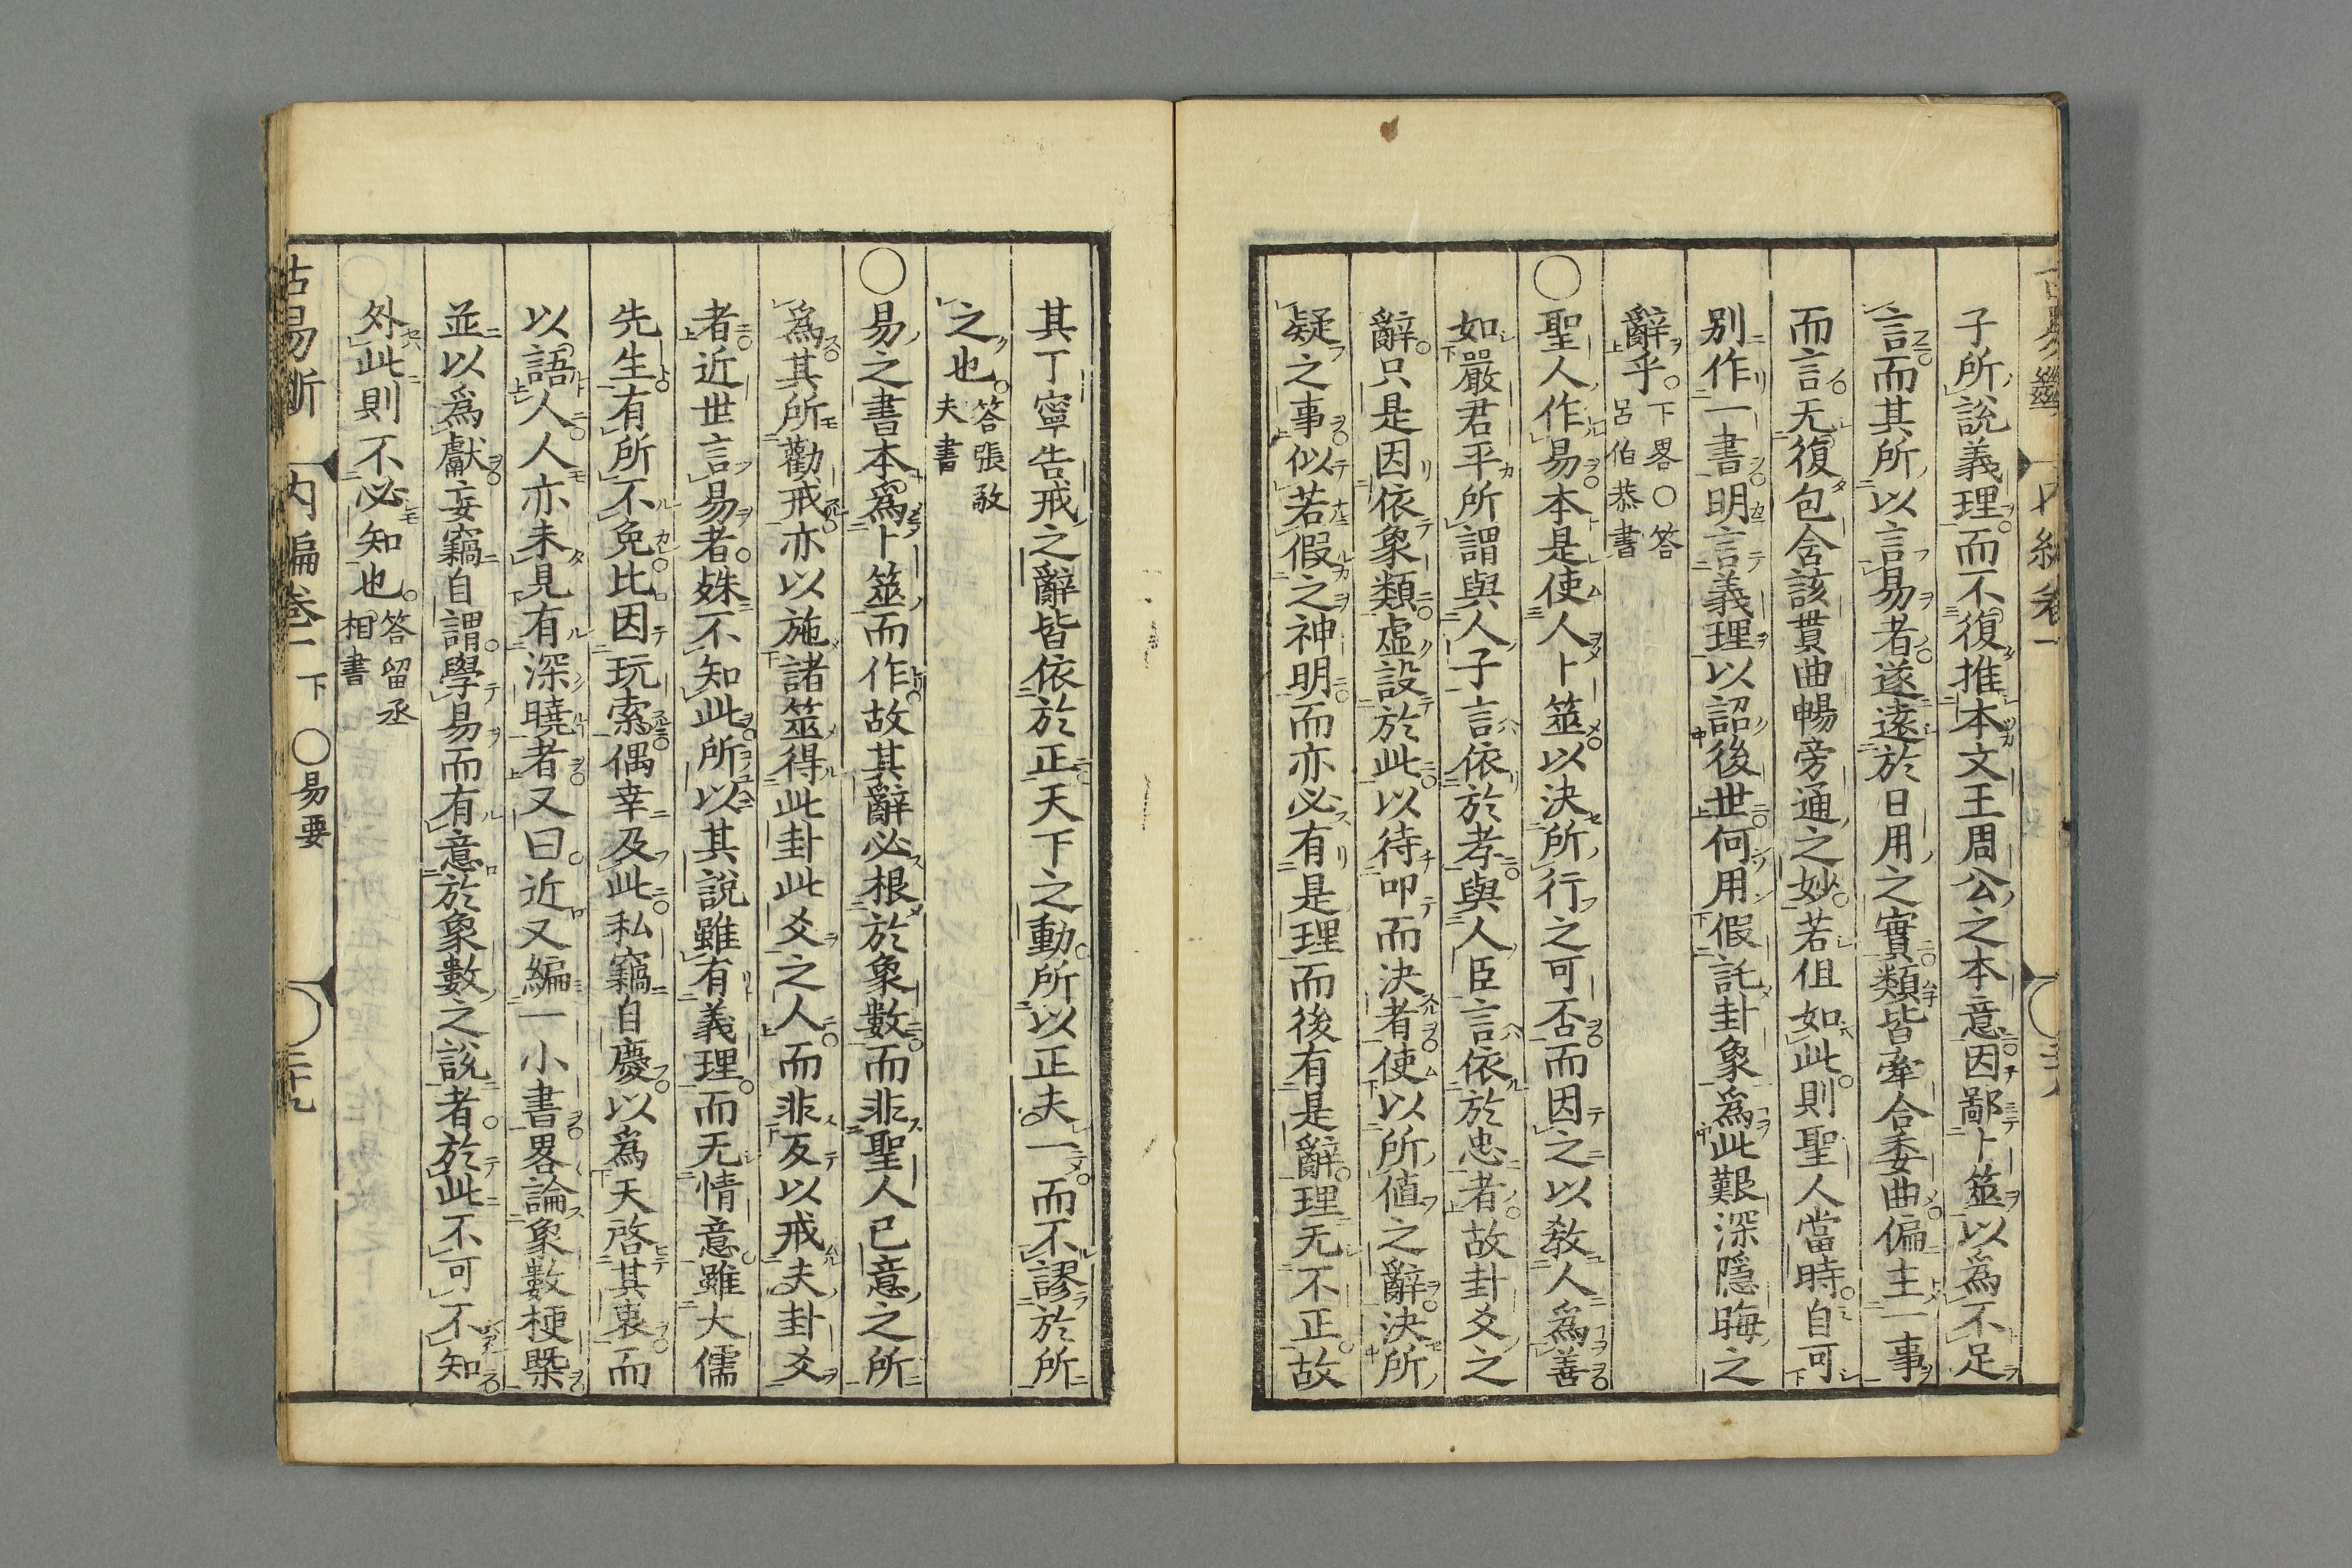 子所說義理而不復推本文王周公之本意因鄙卜筮以爲不足
言而其所以言易者遂遠於日用之實類皆牽合委曲偏主一事
而言无復包含該貫曲暢旁通之妙若但如此則聖人當時自可
别作一書明言義理以詔後世何用假託卦象爲此艱深隱晦之
辭乎下畧○答呂伯恭書
○聖人作易本是使人卜筮以決所行之可否而因之以敎人爲善
如嚴君平所謂與人子言依於孝與人臣言依於忠者故卦爻之
辭只是因依象類虛設於此以待叩而決者使以所値之辭決所
疑之事似若假之神明而亦必有是理而後有是辭理无不正故
其丁寧告戒之辭皆依於正天下之動所以正夫一而不謬於所
之也答張敬夫書
○易之書本爲卜筮而作故其辭必根於象數而非聖人己意之所
爲其所勸戒亦以施諸筮得此卦此爻之人而非反以戒夫卦爻
者近世言易者殊不知此所以其說雖有義理而无情意雖大儒
先生有所不免比因玩索偶幸及此私竊自慶以爲天啓其衷而
以語人人亦未見有深曉者又曰近又編一小書畧論象數梗槩
並以爲獻妄竊自謂學易而有意於象數之說者於此不可不知
外此則不必知也答畱丞相書
古易斷 内編卷一下 ○易要 二十九